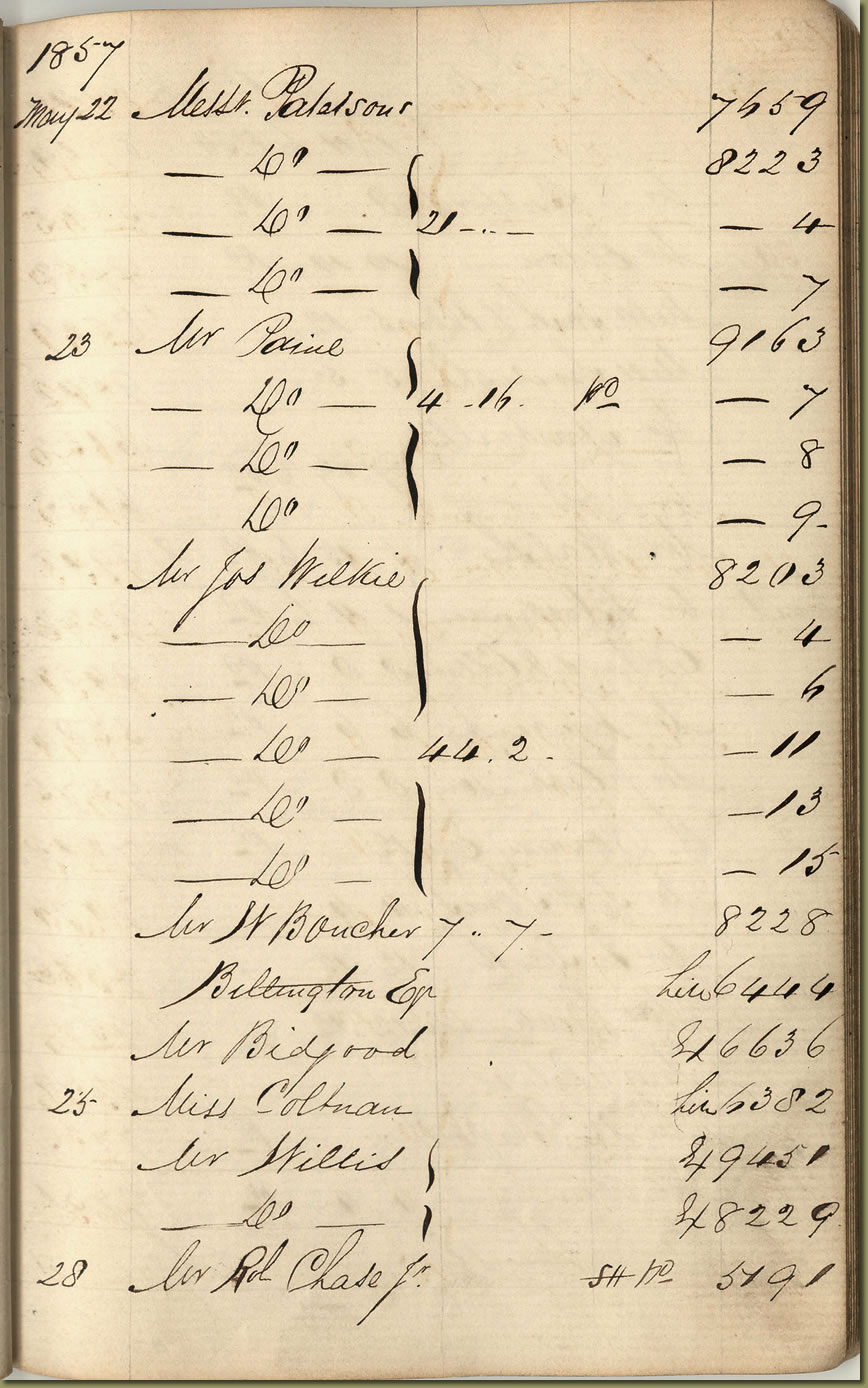 1857
May 22 Messrs. Patersons 7659
— Do — 8223
— Do — 21 - .. - — 4
— Do — — 7
23 Mr Paine 9163
— Do — 4 - 16. — 7
— Do — — 8
Do — 9-
Mr Jos Wilkie 8203
— Do — — 4
— Do — — 6
— Do — 44. 2 - — 11
— Do — — 13
— Do — — 15
Mr W Boucher 7 .. 7 - 8228
Billington 6444
Mr Bidgood 6636
25 Miss Coltman 6382
Mr Willis 9451
— Do — 8229
28 Mr Chase Jr. 5191